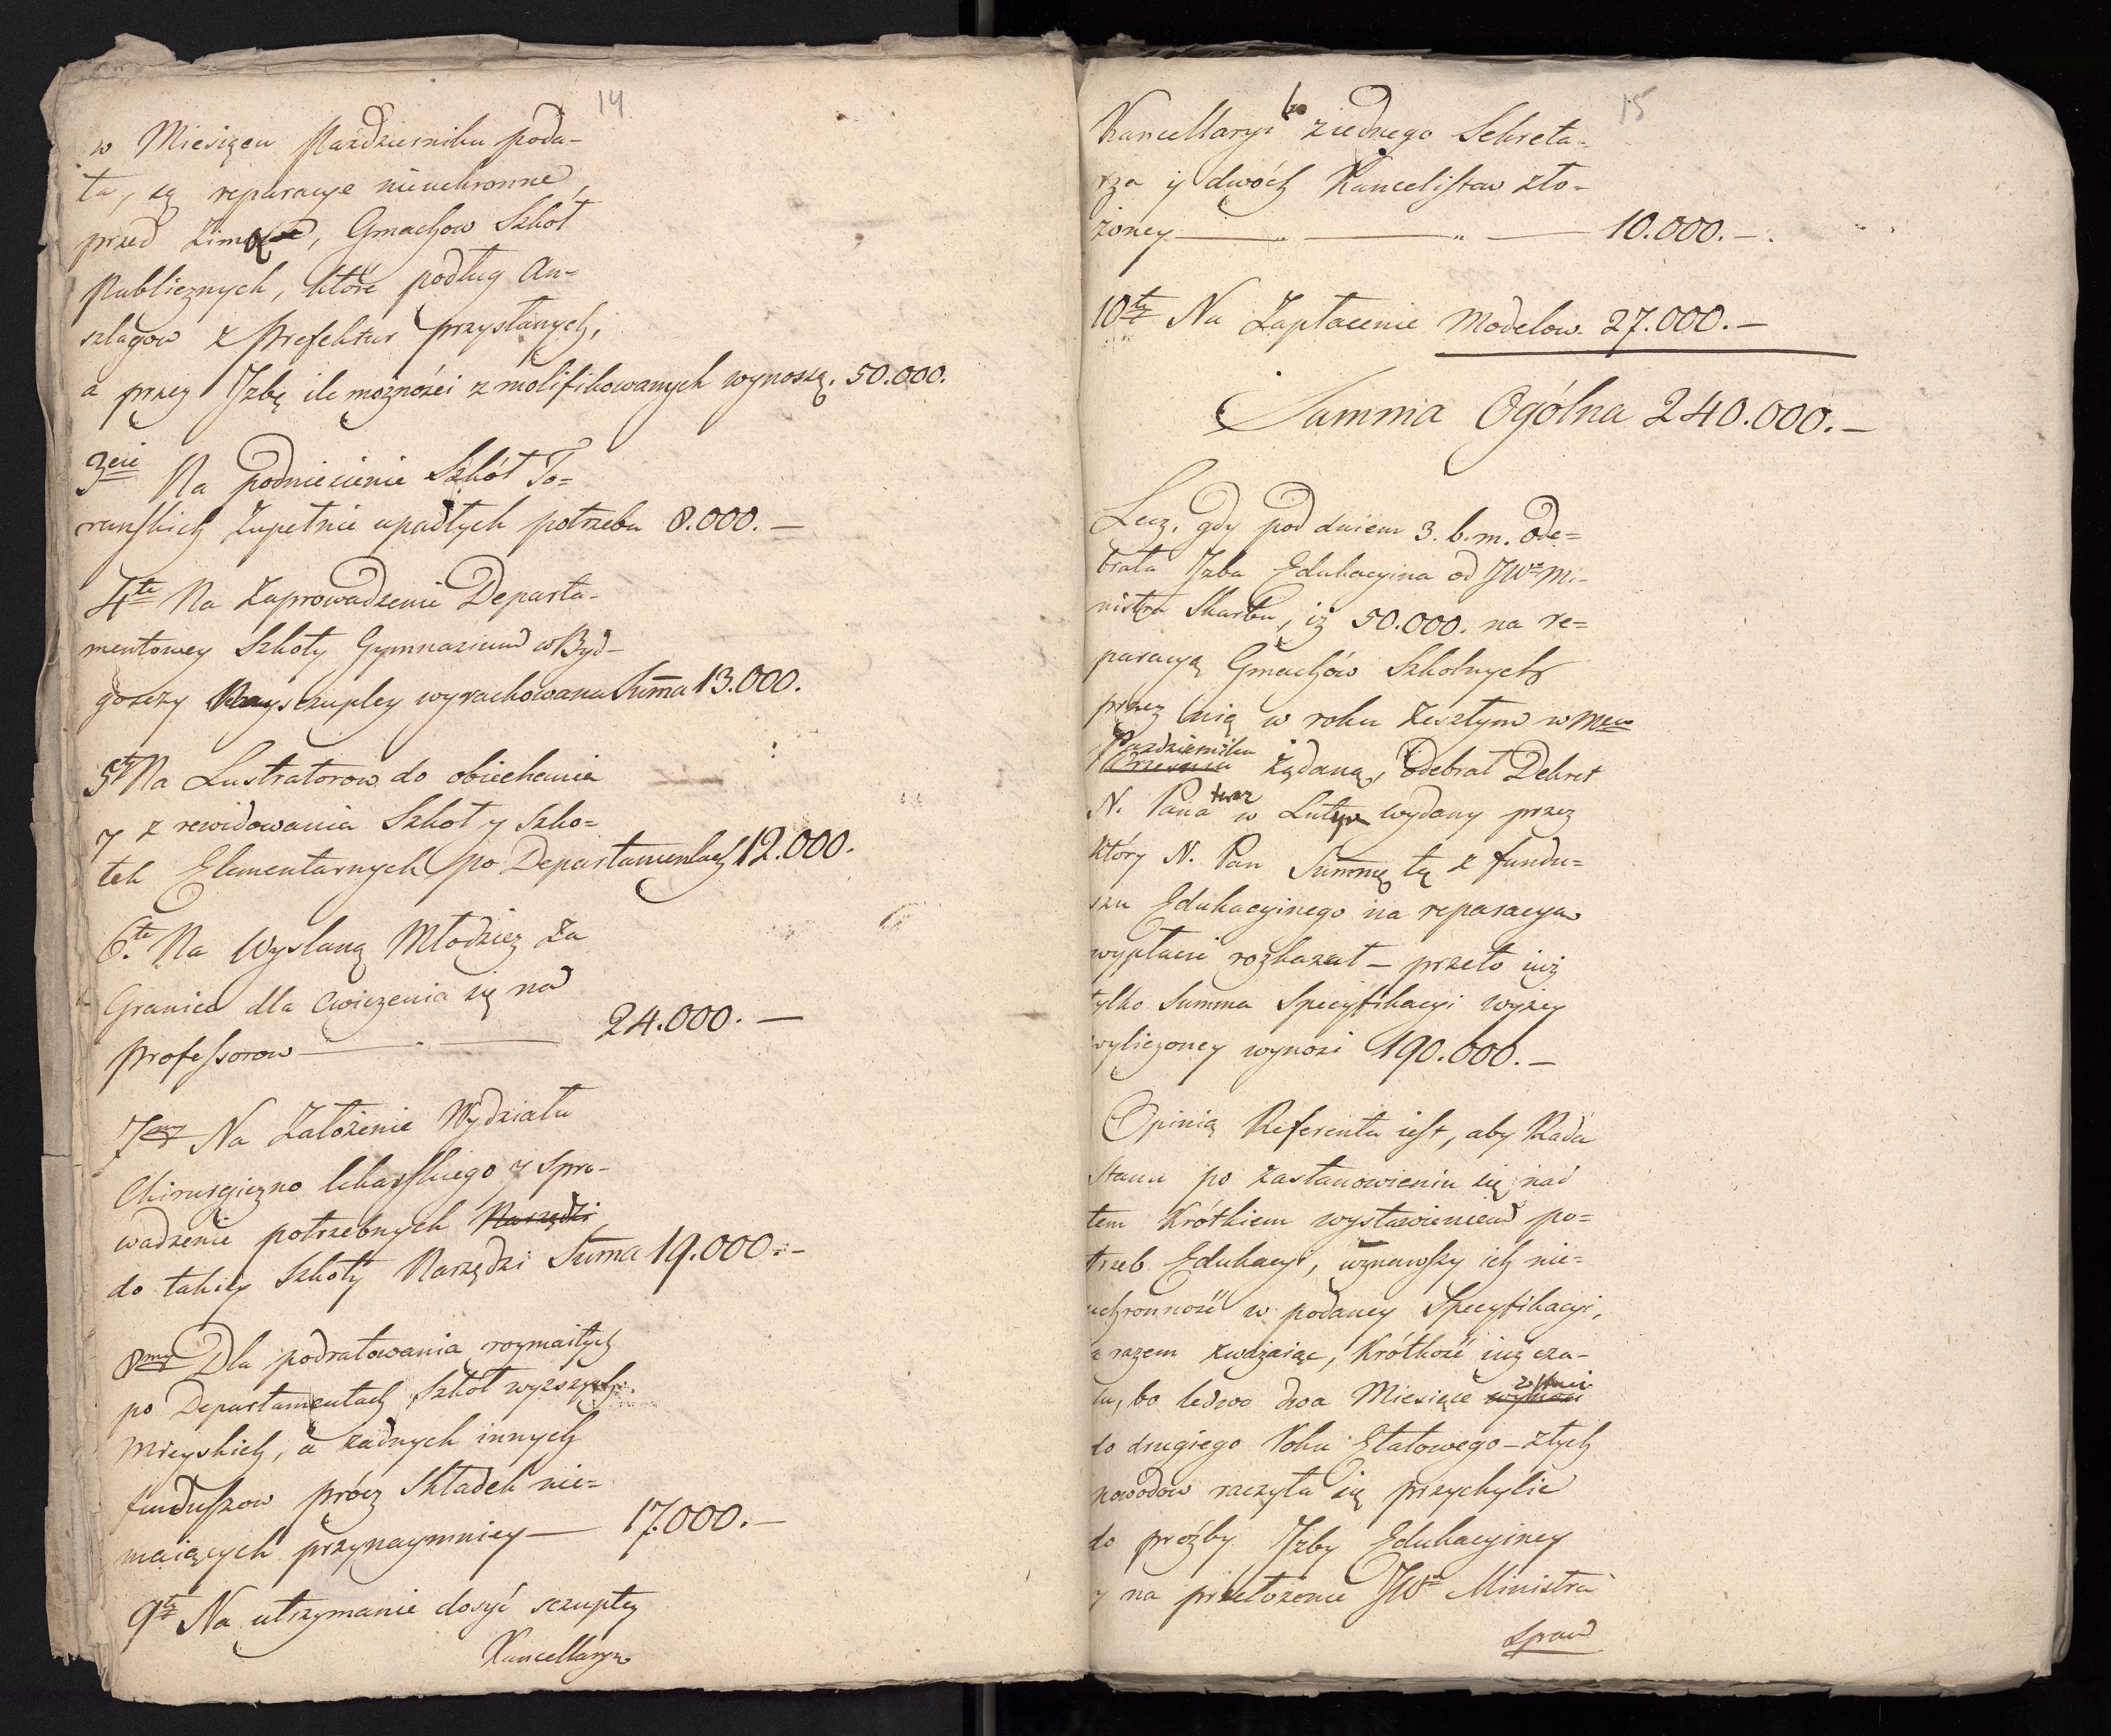 14
w Miesiącu Pazdzierniku poda-
ta, są reparacye nieuchronne
przed Zimą, Gmachow Szkół
Publicznych, które podług An-
szlagow z Prefektur przysłanych,
a przez Jzbę ile możności zmolifikowanych wynoszą. 50.000.
3cie Na podniecienie Szkół To=
ruńskich Zupełnie upadłych potrzeba 8.000.—
4te Na Zaprowadzenie Departa-
mentowey Szkoły Gymnazium w Byd-
goszczy Nayszczupley wyrachowana Suma 13.000.
5te Na Lustratorow do obiechania
y z rewidowania Szkoł y Szko=
łek Elementarnych po Departamentach 12.000.
6te Na Wysłaną Młodziez Za
Granice dla Cwiczenia się na
professorow — 24.000.—
7mo Na Założenie Wydziału
Chirurgiczno lekarskiego y spro-
wadzenie potrzebnych Narzędzi
do takiey Szkoły Narzędzi Suma 19.000.—
8my Dla podratowania rozmaitych
po Departamentach Szkół wyższych
Mieyskich, a żadnych innych
funduszow prócz Składek nie=
maiących przynaymniey — 17.000.—
9te Na utrzymanie dosyć szczupłey
Kancellaryi
15
Kancellaryi bo z iednego Sekreta=
rza y dwóch Kancelistow zło=
żoney — " — " — 10.000.—.
10te Na Zapłacenie Modelow 27.000.—
Summa Ogólna 240.000.—
Lecz, gdy pod dniem 3. b. m. ode=
brała Jzba Edukacyina od JWo Mi-
nistra Skarbu, iż 50.000. na re=
paracyą Gmachów Szkolnych
przez nią w roku Zeszłym w Mcu
Pazdzierniku
Wrzesniu żądaną, odebrał Dekret
N. Pana teraz w Lutym wydany przez
który N. Pan Summę tę z fundu=
szu Edukacyinego na reparacyą
wypłacić rozkazał — przeto iuż
tylko Summa Specyfikacyi wyżey
wyliczoney wynosi 190.000.—
Opinią Referenta iest, aby Rada
Stanu po zastanowieniu się nad
tem Krótkiem wystawieniem po=
trzeb Edukacyi, uznawszy ich nie=
uchronność w podaney Specyfikacyi,
a razem zważaiąc, Krótkość iuż cza-
su, bo ledwo dwa Miesiące wynosi
do drugiego Roku Etatowego — z tych
powodow raczyła się przychylić
do prożby Jzby Edukacyiney
y na przełożenie JWo Ministra
Spraw